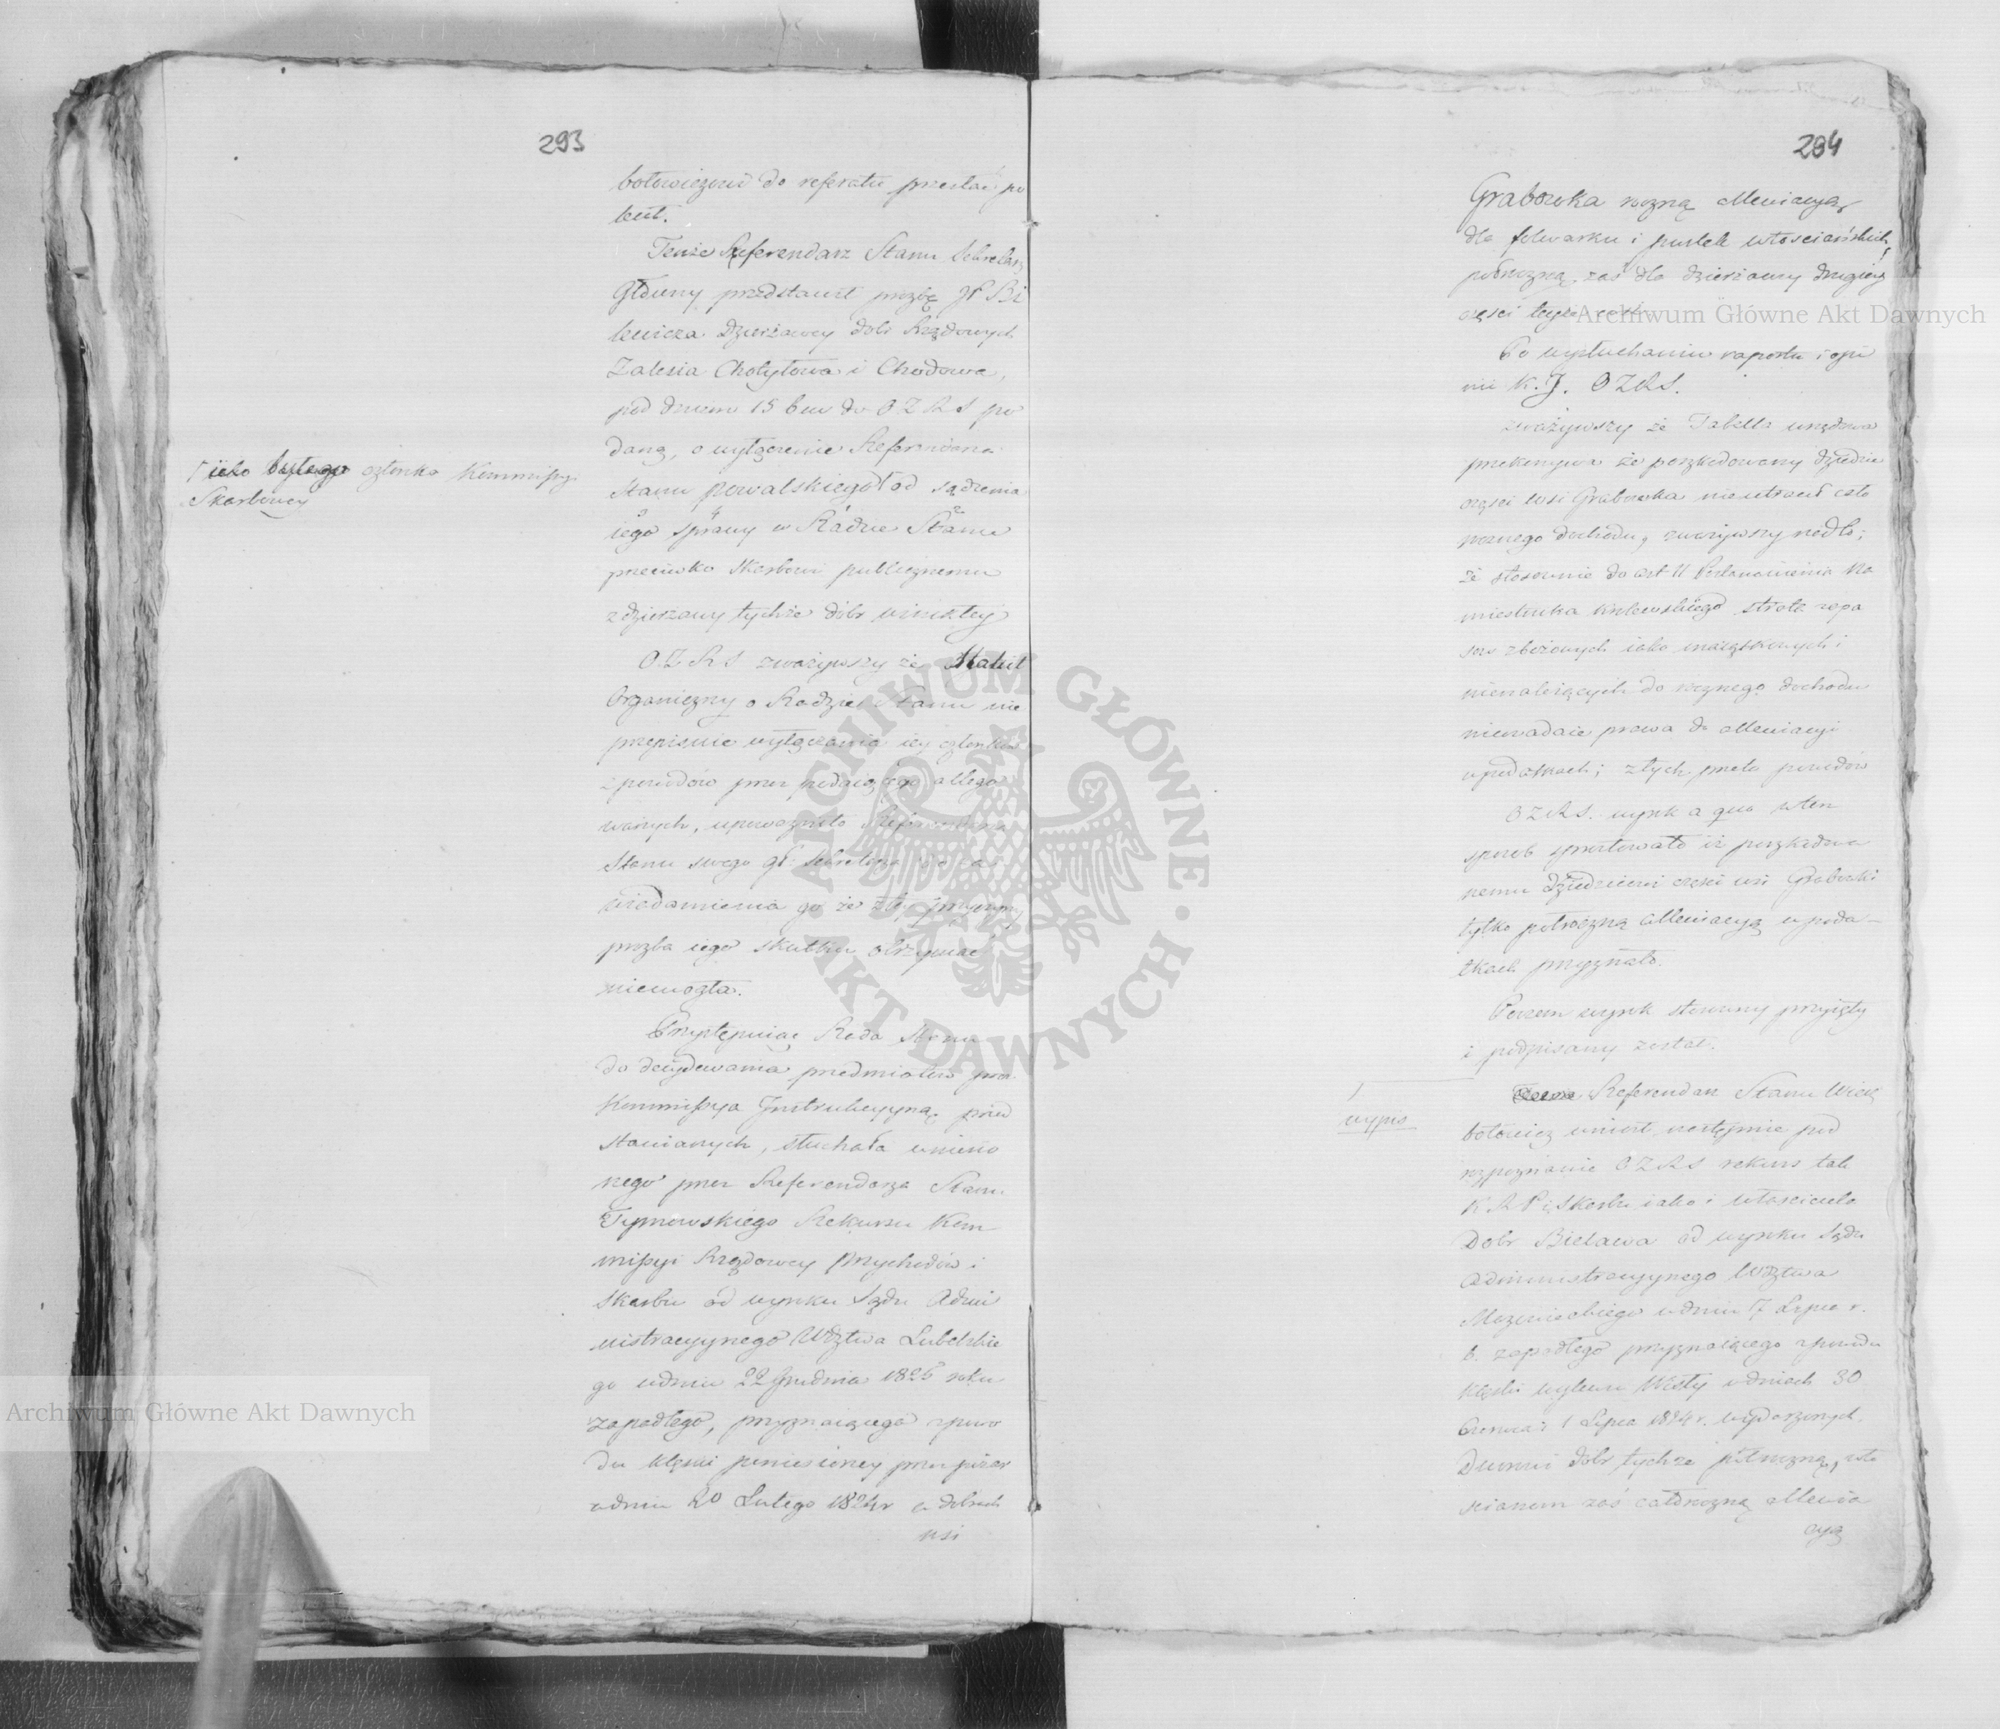 293
botowiczowi do referatu przesłać po
lecił.
Tenże Referendarz Stanu Sekretarz
Główny przedstawił prozbę JP Bi
lewicza Dzierżawcy dobr Rządowych
Zalesia Chotyłowa i Chodowa,
pod dniem 15 b m do OZRS po
daną, o wyłączenie Referendarza
Stanu Kowalskiego Γ od sądzenia
iego sprawy w Radzie Stanu
przeciwko Skarbowi publicznemu
z dzierżawy tychże dóbr wynikłej
Γ iako byłego członka Kommissyi
Skarbowey
OZRS zważywszy że Statut
Organiczny o Radzie Stanu nie
przepisuie wyłączania iey członków
z powodów przez podaiącego allego
wanych, upoważniło Referendarza
Stanu swego Gł. Sekretarza do za
wiadomienia go że z tey przyczyny
prozba iego skutku otrzymać
niemogła.
Przystępuiąc Rada Stanu
do decydowania przedmiotów przez
Kommissyą Instrukcyyną przed
stawianych, słuchała wniesio
nego przez Referendarza Stanu
Tymowskiego Rekursu Kom
missyi Rządowey Przychodów i
Skarbu od wyroku Sądu Admi
nistracyynego Wdztwa Lubelskie
go w dniu 22 Grudnia 1826 roku
zapadłego, przyznaiącego z powo
du klęski poniesioney przez pożar
w dniu 20 Lutego 1824 r w dobrach
wsi
284
Grabowka roczną allewiacyą
dla folwarku i pustek włościańskich,
półroczną zaś dla dzierżawy drugiey
części teyże wsi.
Po wysłuchaniu raportu i opi
nii K. J. OZRS.
zważywszy że Tabella urzędowa
przekonywa że poszkodowany dziedzic
części wsi Grabowka nieutracił cało
rocznego dochodu, zważywszy nadto;
że stosownie do art 11 Postanowienia Na
miestnika Królewskiego strata zapa
sów zbożowych iako maiątkowych i
nienależących do rocznego dochodu
nienadaie prawa do allewiacyi
w podatkach; z tych przeto powodów
OZRS. wyrok a quo w ten
sposób sprostowało iż poszkodowa
nemu Dziedzicowi części wsi Grabowki
tylko półroczną allewiacyą w poda-
tkach przyznało.
Poczem wyrok stosowny przyięty
i podpisany został.
Γ
wypis
Referendarz Stanu Wielg
botowicz wniósł następnie pod
rozpoznanie OZRS rekurs tak
K R P i Skarbu iako i właściciela
Dobr Bielawa od wyroku Sądu
Administracyynego Wdztwa
Mazowieckiego w dniu 7 Lipca r.
b. zapadłego przyznaiącego z powodu
klęski wylewu Wisły w dniach 30
Czerwca i 1 Lipca 1824 r. wydarzonych
Dworowi dobr tychże półroczną, wło
ścianom zaś całoroczną allewia
cyą
Archiwum Główne Akt Dawnych
Archiwum Główne Akt Dawnych
ARCHIWUM GŁÓWNE · AKT DAWNYCH ·